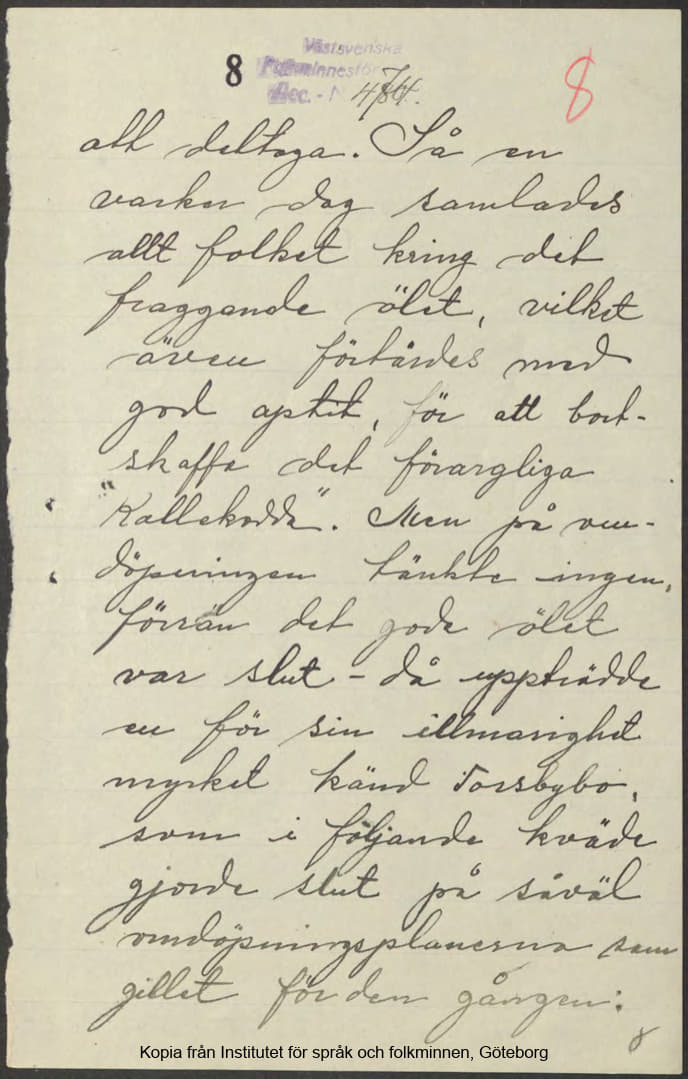 8
Västsvenska
Folkminnesför
Acc. - N
8
att deltaga. Så en
vacker dag samlades
allt folket kring det
fraggande ölet, vilket
även förtärdes med
god aptit, för att bort-
skaffa det förargliga
"Kallekodda". Men på om-
döpningen tänkte ingen,
förrän det goda ölet
var slut - då uppträdde
en för sin illmarighet
mycket känd Torsbybo,
som i följande kväde
gjorde slut på såväl
omdöpningsplanerna som
gillet för den gången:
8
Kopia från Institutet för språk och folkminnen, Göteborg